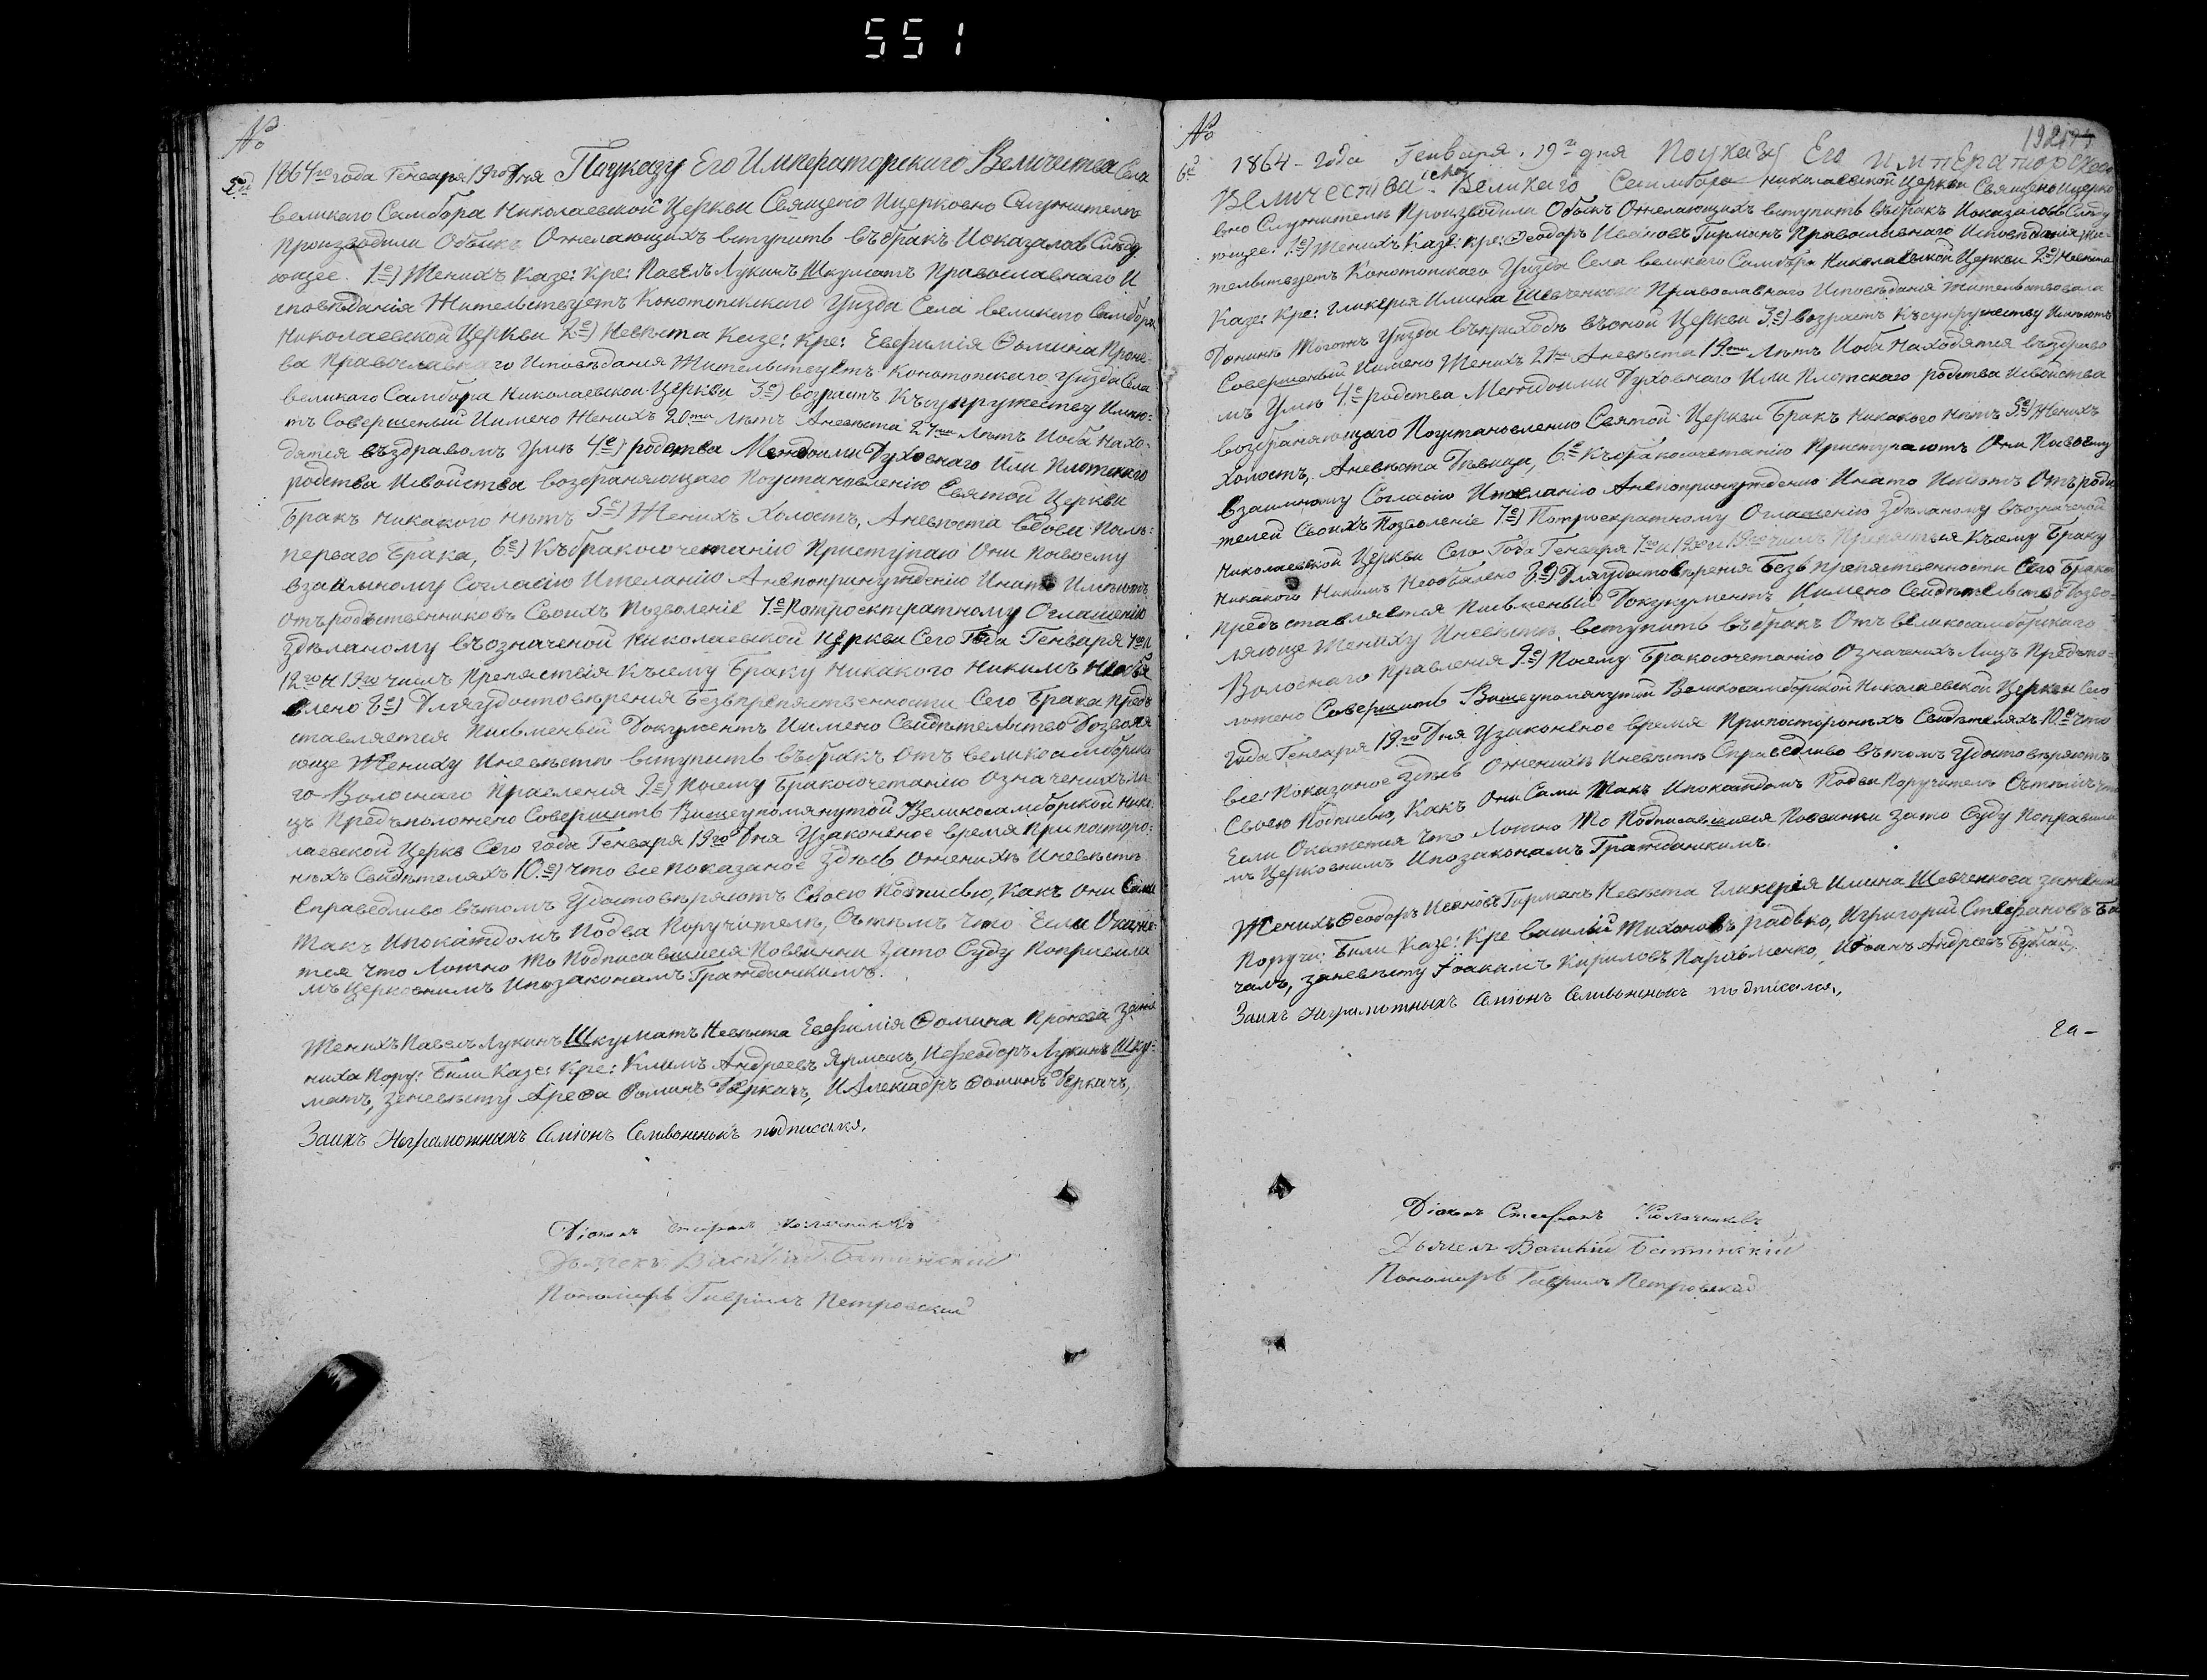 551
№
5й 1864го года Генваря 19го Дня Поуказу Его Императорскаго Величества Села
великаго Самбора Николаевской Церкви Священо Ицерковно Служители
Производили Обыскъ Ожелающихъ вступить въбракъ Иоказалось Следу
ющее. 1е) Женихъ Казе: Кре: Павелъ Лукинъ Шкуматъ Православнаго И
споведания Жительствуетъ Конотопскаго Уизда Села великого Самбора
Николаевской Церкви 2е) Невѣста Казе: Кре: Евфимія Фомина Проне-
ва Православнаго Исповѣдания Жительствуетъ Конотопскаго Уизда Села
великаго Самбора Николаевской Церкви 3е) возрастъ Късупружеству Имѣю:
тъ Совершеный Иимено Женихъ 20ти Лѣтъ Аневѣста 27ми Лѣтъ Иоба Нахо-
дятся въздравомъ Умѣ 4е) родства Междоими Духовнаго Или Плотскаго
родства Исвойства возбраняющаго Поустановлению Святой Церкви
Бракъ никакого нѣтъ 5е) Женихъ Холостъ, Аневѣста вдова Послѣ:
перваго Брака, 6е) Къбракосочетанию Приступаю Они Посвоему
взаимному Согласию Ижеланию Анепопринуждению Инато Имѣютъ
Отъродственниковъ Своихъ Позволение 7е) Потроектратному Оглашению
Здѣланому въозначеной Николаевской Церкви Сего Года Генваря 7го и
12го и 19го числъ Препятствия Късему Браку Никакого Никимъ Необя
влено 8е) Дляудостовѣрения Безъпрепятственности Сего Брака Предъ
ставляется Писменный Документъ Иимено Свидѣтельство Дозволя
юще Жениху Иневѣсте вступить въбракъ Отъ великосамборска
го Волоснаго Правления 9е) Посему Бракосочетанию Означенихъ Ли
цъ Предъположено Совершить Вишеупомянутой Великосамборской Нико
лаевской Церкв Сего года Генваря 19го Дня Узаконеное время При посторо:
нихъ Свидѣтеляхъ 10е) что все показаное Здѣсь Оженихѣ Иневѣстѣ
Справедливо вътомъ Удостовѣряютъ Своею Подписью, Какъ Они Сами
Такъ Ипокаждомъ Подва Поручителя, Сътѣмъ Что Если Окаже
тся Что Ложно То Подписавшиеся Повинни Зато Суду Поправила
мъ Церковнимъ Ипозаконамъ Гражданскимъ.
Женихъ Павелъ Лукинъ Шкуматъ Невѣста Евфимія Фомина Пронева Заже
ниха Пору: Били Казе: Кре: Климъ Андреевъ Ярмакъ, Ифеодоръ Лукинъ Шку-
матъ, Заневѣсту Арефа Фоминъ Деркачъ, ИАлександръ Фоминъ Деркачъ,
Заихъ Неграмотныхъ Симіонъ подписался.
Діаконъ Стефанъ
Дьячекъ Василій
Пономарь Гавриилъ Петровский
№
6е 1864 - Года Генваря 19го дня Поуказу Его императорскаго
Величества Села Великаго Самбора Николаевской Церкви Священо Ицерко
вно Служители Производили Обыскъ Ожелающихъ вступить въбракъ Иоказалось Следу
ющее: 1е) Женихъ Казе: Кре: Феодоръ Ивановъ Гирманъ Православнаго Исповѣдания Жи-
тельствуетъ Конотопскаго Уизда Села великаго Самбора Николаевской Церкви 2е) Невѣста
Казе: Кре: Гликерия Илина Шевченкова Православнаго Исповѣданія Жительствовала
Тогожъ Уизда въприходѣ въоной Церкви 3е) возрастъ Късупружеству Имѣютъ
Совершеный Иимено Женихъ Аневѣста 19ти Лѣтъ Иоба Находятся въздраво
мъ Умѣ 4е родства Междоими Духовнаго Или Плотскаго родства Исвойства
возбраняющаго Поустановлению Святой Церкви Бракъ никакого Нѣтъ 5е) Женихъ
Холостъ, Аневѣста Дѣвица, 6е Къбракосочетанию Приступаютъ Они Посвоему
взаимному Согласию Ижеланию Анепопринуждению Инато Имѣютъ Отъроди
телей Своихъ Позволение 7е) Потроекратному Оглашению Здѣланому въозначеной
Николаевской Церкви Сего Года Генваря 7го и 12го и 19го числъ Препятствия Късему Браку
Никакого Никимъ Необявлено 8е) Дляудостовѣрения Безъ препятственности Сего Брака
Предъ ставляется Писменный Докукументъ Иимено Свидѣтельство Дозво-
ляюще Жениху Иневѣсте вступить въбракъ Отъ великосамборскаго
Волоснаго правления 9е) Посему Бракосочетанию Означенихъ Лицъ Предъпо-
ложено Совершить Вишеупомянутой Великосамборской Николаевской Церкви Сего
года Генваря 19го Дня Узаконеное время Припосторонихъ Свидѣтеляхъ 10е что
все Показаное Здѣсь Оженихѣ Иневѣстѣ Справедливо вътомъ Удостовѣряютъ
Своею Подписью, Какъ Они Сами Такъ Ипокаждомъ Подва Поручителя Сътѣмъ что
Если Окажется Что Ложно То Подписавшиеся Повинни Зато Суду Поправила
мъ Церковнимъ Ипозаконамъ Гражданскимъ.
Женихъ Феодоръ Ивановъ Гирманъ Невѣста Гликерія Илина Шевченкова Зажениха
Поручи: Били Казе: Кре василий Тихоновъ радько, Игригорий Стефановъ
чамъ, заневѣсту Іоакимъ Кириловъ Пархоменко, Андреевъ
Заихъ Неграмотныхъ Симіонъ подписался,
Діаконъ Стефанъ
Дьячекъ Василій
Пономарь Гавриилъ Петровский